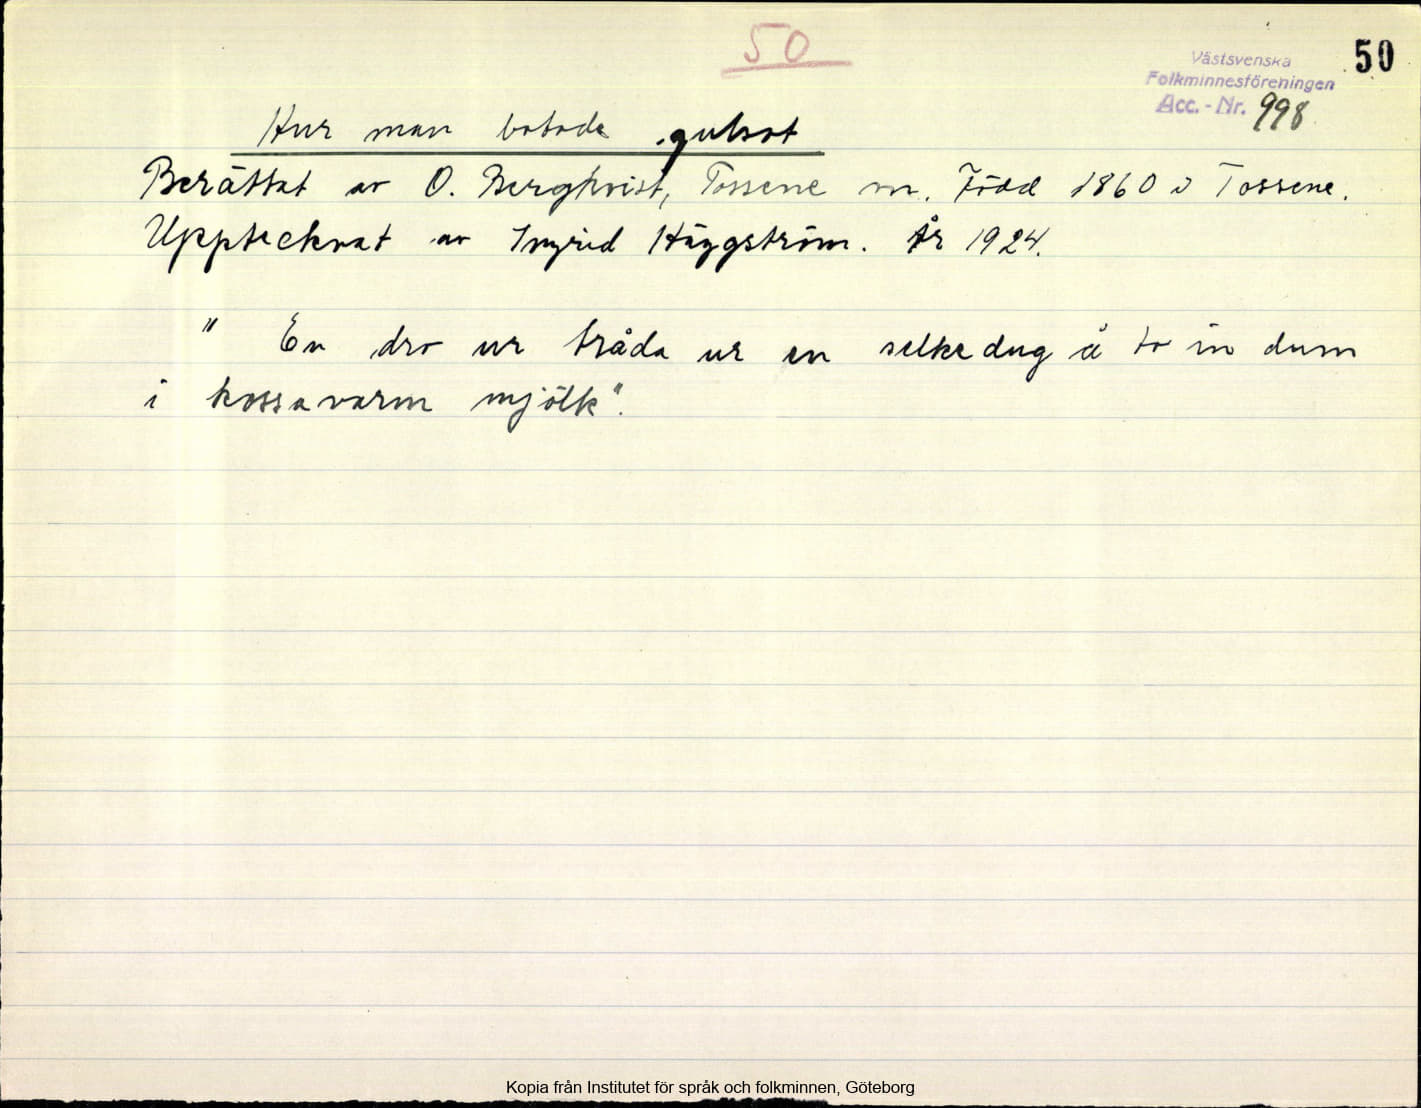 50
50
Västsvenska
Folkminnesföreningen
Acc. - Nr. 998.
Hur man botade gulsot
Berättat av O. Bergkvist, Tossene sn. Född 1860 i Tossene.
Upptecknat av Ingrid Häggström. År 1924.
" En dro ur tråda ur en selkedug å to in dum
i kossavarm mjölk".
Kopia från Institutet för språk och folkminnen, Göteborg